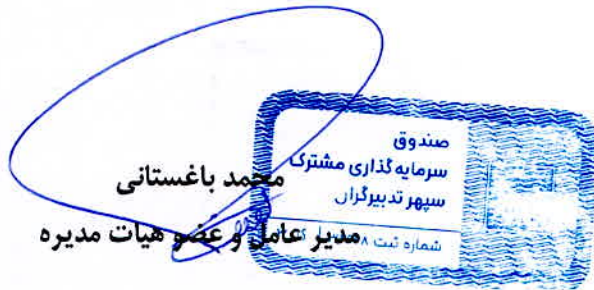 صندوق
سرمایه گذاری مشترک
سپهر تدبیرگران
شماره ثبت
محمد باغستانی
مدیر عامل و عضو هیات مدیره